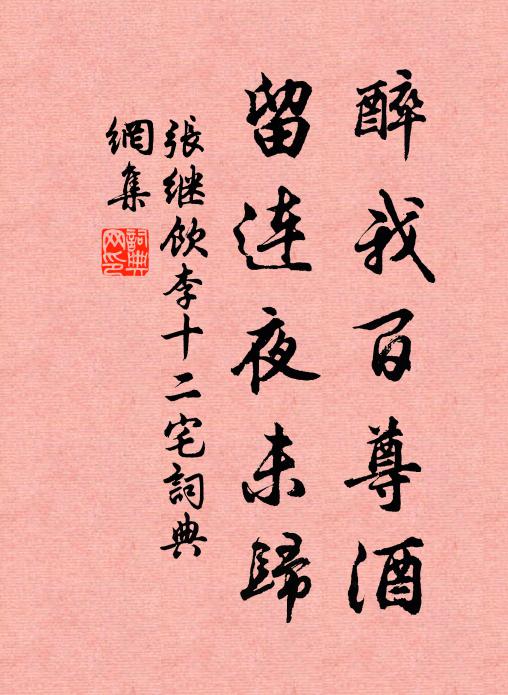 醉我百尊酒
留连夜未歸
張继飲李十二宅詞典
網集
詞典
网印